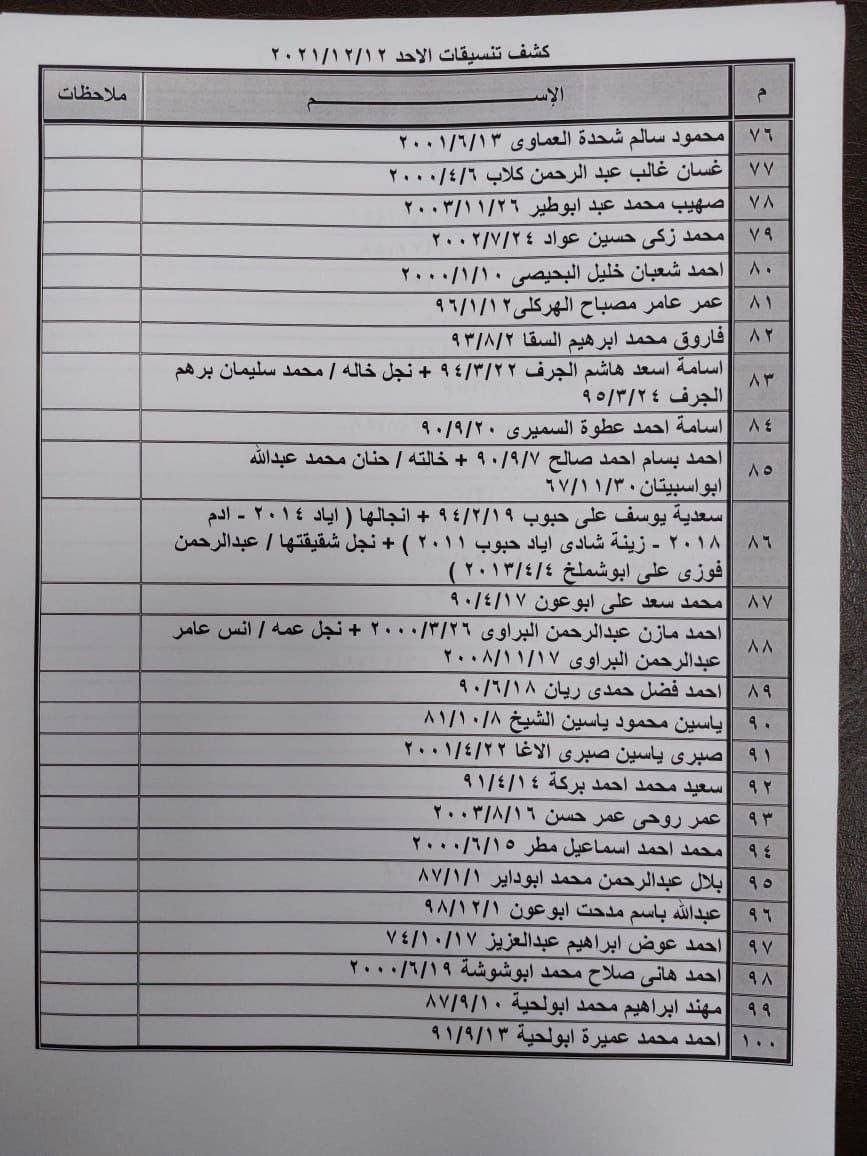 كشف تنسيقات الاحد ٢٠٢١/١٢/١٢
م الإســـــــــم ملاحظات
٧٦ محمود سالم شحدة العماوى ٢٠٠١/٦/١٣
٧٧ غسان غالب عبد الرحمن كلاب ٢٠٠٠/٤/٦
٧٨ صهيب محمد عبد ابوطير ٢٠٠٣/١١/٢٦
٧٩ محمد زكى حسين عواد ٢٠٠٢/٧/٢٤
٨٠ احمد شعبان خليل البحيصى ٢٠٠٠/١/١٠
٨١ عمر عامر مصباح الهركلى٩٦/١/١٢
٨٢ فاروق محمد ابرهيم السقا ٩٣/٨/٢
٨٣ اسامة اسعد هاشم الجرف ٩٤/٣/٢٢ + نجل خاله / محمد سليمان برهم
الجرف ٩٥/٣/٢٤
٨٤ اسامة احمد عطوة السميرى ٩٠/٩/٢٠
٨٥ احمد بسام احمد صالح ٩٠/٩/٧ + خالته / حنان محمد عبدالله
ابواسبيتان٦٧/١١/٣٠
٨٦ سعدية يوسف على حبوب ٩٤/٢/١٩ + انجالها ( اياد ٢٠١٤ - ادم
٢٠١٨ - زينة شادى اياد حبوب ٢٠١١ ) + نجل شقيقتها / عبدالرحمن
فوزى على ابوشملخ ٢٠١٣/٤/٤ )
٨٧ محمد سعد على ابوعون ٩٠/٤/١٧
٨٨ احمد مازن عبدالرحمن البراوى ٢٠٠٠/٣/٢٦ + نجل عمه / انس عامر
عبدالرحمن البراوى ٢٠٠٨/١١/١٧
٨٩ احمد فضل حمدى ريان ٩٠/٦/١٨
٩٠ ياسين محمود ياسين الشيخ ٨١/١٠/٨
٩١ صبرى ياسين صبرى الاغا ٢٠٠١/٤/٢٢
٩٢ سعيد محمد احمد بركة ٩١/٤/١٤
٩٣ عمر روحى عمر حسن ٢٠٠٣/٨/١٦
٩٤ محمد احمد اسماعيل مطر ٢٠٠٠/٦/١٥
٩٥ بلال عبدالرحمن محمد ابوداير ٨٧/١/١
٩٦ عبدالله باسم مدحت ابوعون ٩٨/١٢/١
٩٧ احمد عوض ابراهيم عبدالعزيز ٧٤/١٠/١٧
٩٨ احمد هانى صلاح محمد ابوشوشة ٢٠٠٠/٦/١٩
٩٩ مهند ابراهيم محمد ابولحية ٨٧/٩/١٠
١٠٠ احمد محمد عميرة ابولحية ٩١/٩/١٣